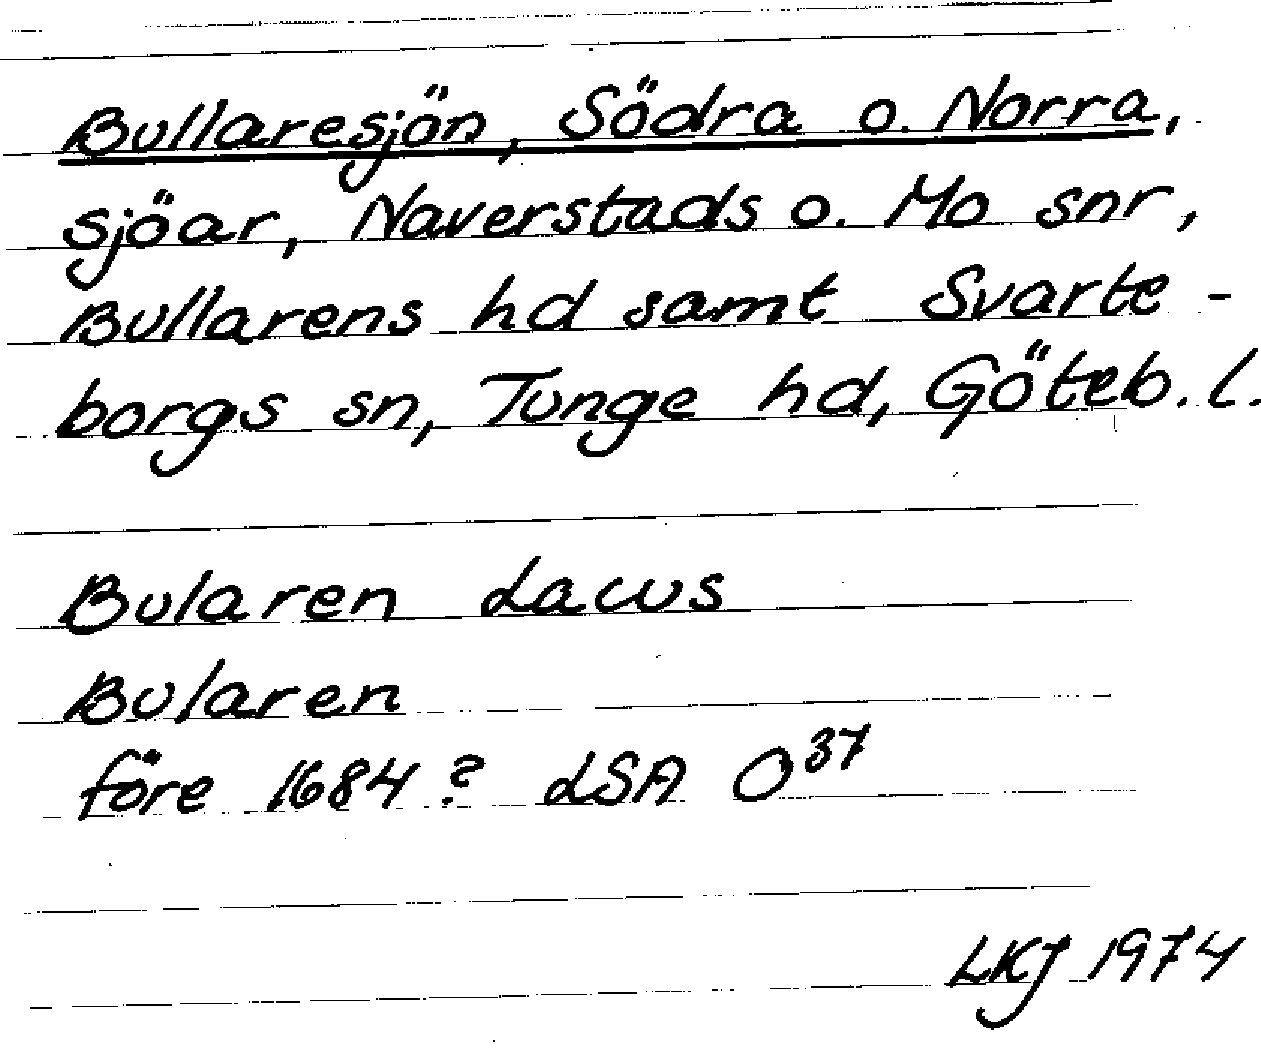 Bullaresjön, Södra o. Norra,
sjöar, Naverstads o. Mo snr,
Bullarens hd samt Svarte-
borgs sn, Tunge hd, Göteb. l.
Bularen Lacus
Bularen
före 1684? LSA O³⁷
LKJ 1974